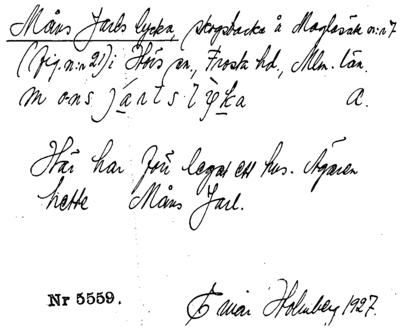 Måns Jarls lycka, skogsbacke å Maglasäte n:r 7
(fig. n:r 21) i Hörs sn., Frosta hd., Mlm. län.
mons jarls lyka A.
Här har förr legat ett hus. Ägaren
hette Måns Jarl.
Nr 5559. Einar Holmberg, 1927.